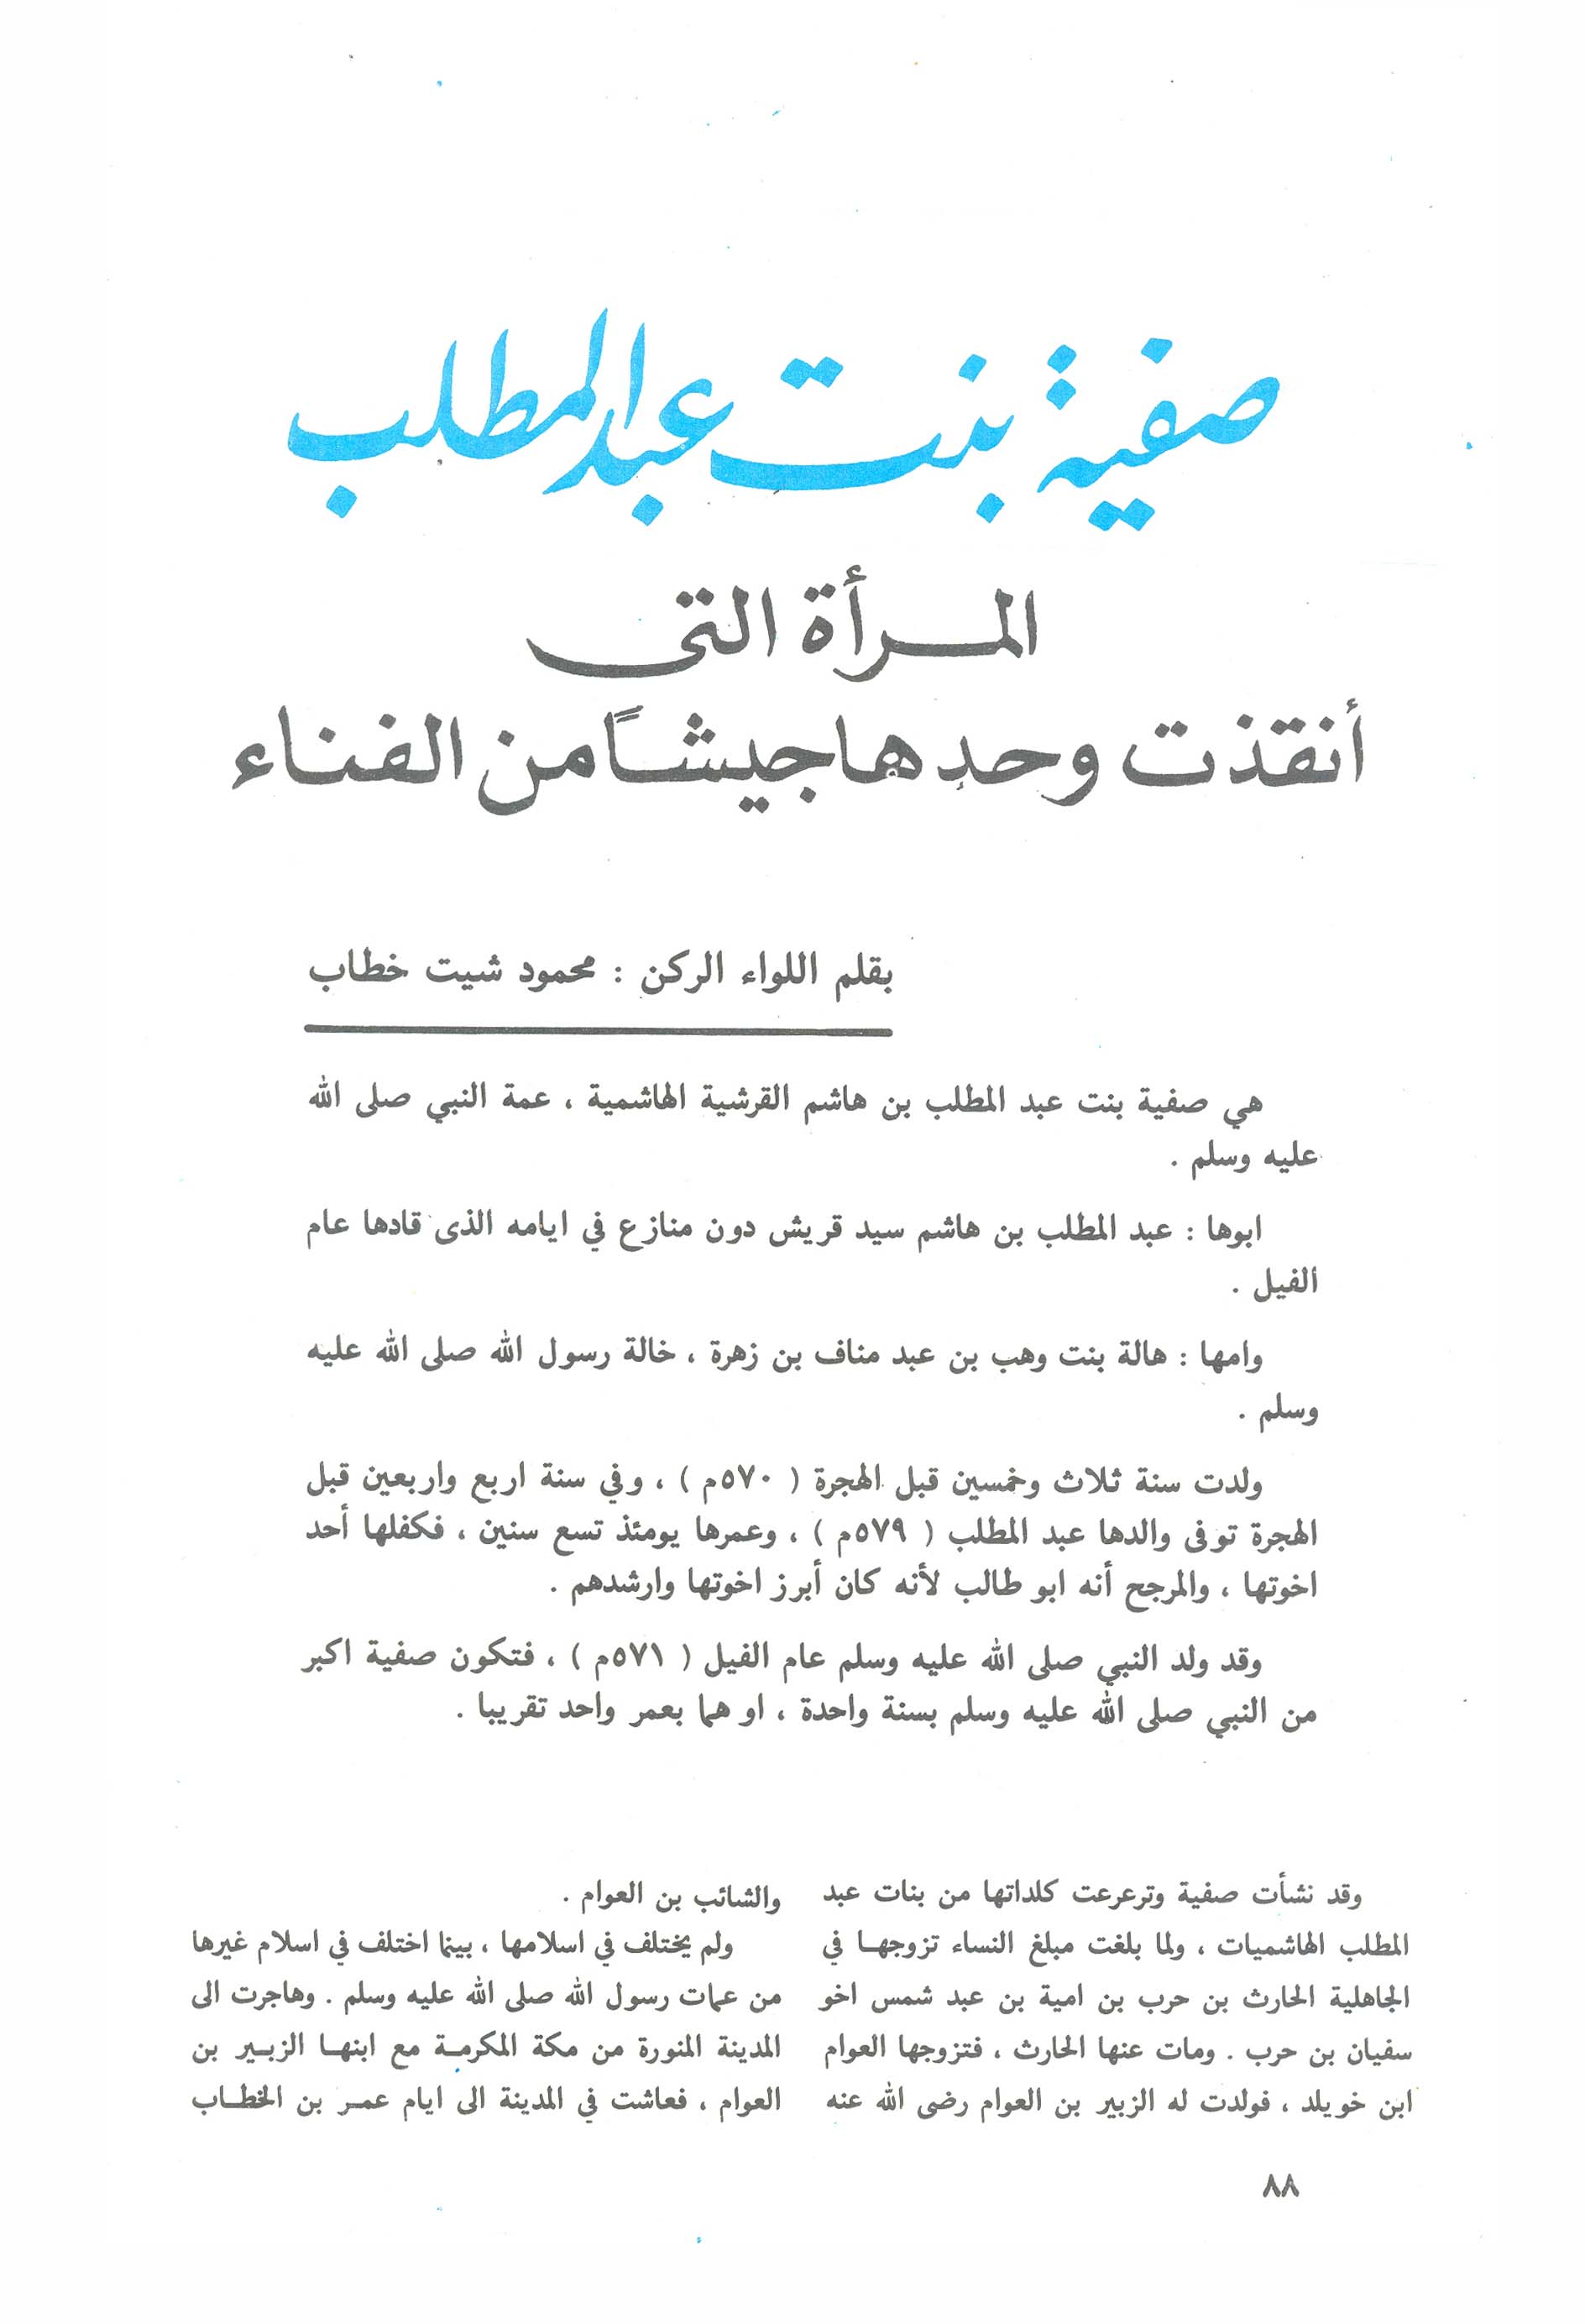 صفية بنت عبد المطلب
المرأة التى
أنقذت وحدها جيشًا من الفناء
بقلم اللواء الركن : محمود شيت خطاب
هي صفية بنت عبد المطلب بن هاشم القرشية الهاشمية ، عمة النبي صلى الله
عليه وسلم .
ابوها : عبد المطلب بن هاشم سيد قريش دون منازع في ايامه الذى قادها عام
الفيل .
وامها : هالة بنت وهب بن عبد مناف بن زهرة ، خالة رسول الله صلى الله عليه
وسلم .
ولدت سنة ثلاث وخمسين قبل الهجرة ( ٥٧٠م ) ، وفي سنة اربع واربعين قبل
الهجرة توفى والدها عبد المطلب ( ٥٧٩م ) ، وعمرها يومئذ تسع سنين ، فكفلها أحد
اخوتها ، والمرجح أنه ابو طالب لأنه كان أبرز اخوتها وارشدهم .
وقد ولد النبي صلى الله عليه وسلم عام الفيل ( ٥٧١م ) ، فتكون صفية اكبر
من النبي صلى الله عليه وسلم بسنة واحدة ، او هما بعمر واحد تقريبا .
وقد نشأت صفية وترعرعت كلداتها من بنات عبد
المطلب الهاشميات ، ولما بلغت مبلغ النساء تزوجها في
الجاهلية الحارث بن حرب بن امية بن عبد شمس اخو
سفيان بن حرب . ومات عنها الحارث ، فتزوجها العوام
ابن خويلد ، فولدت له الزبير بن العوام رضى الله عنه
والشائب بن العوام .
ولم يختلف في اسلامها ، بينما اختلف في اسلام غيرها
من عمات رسول الله صلى الله عليه وسلم . وهاجرت الى
المدينة المنورة من مكة المكرمة مع ابنها الزبير بن
العوام ، فعاشت في المدينة الى ايام عمر بن الخطاب
٨٨